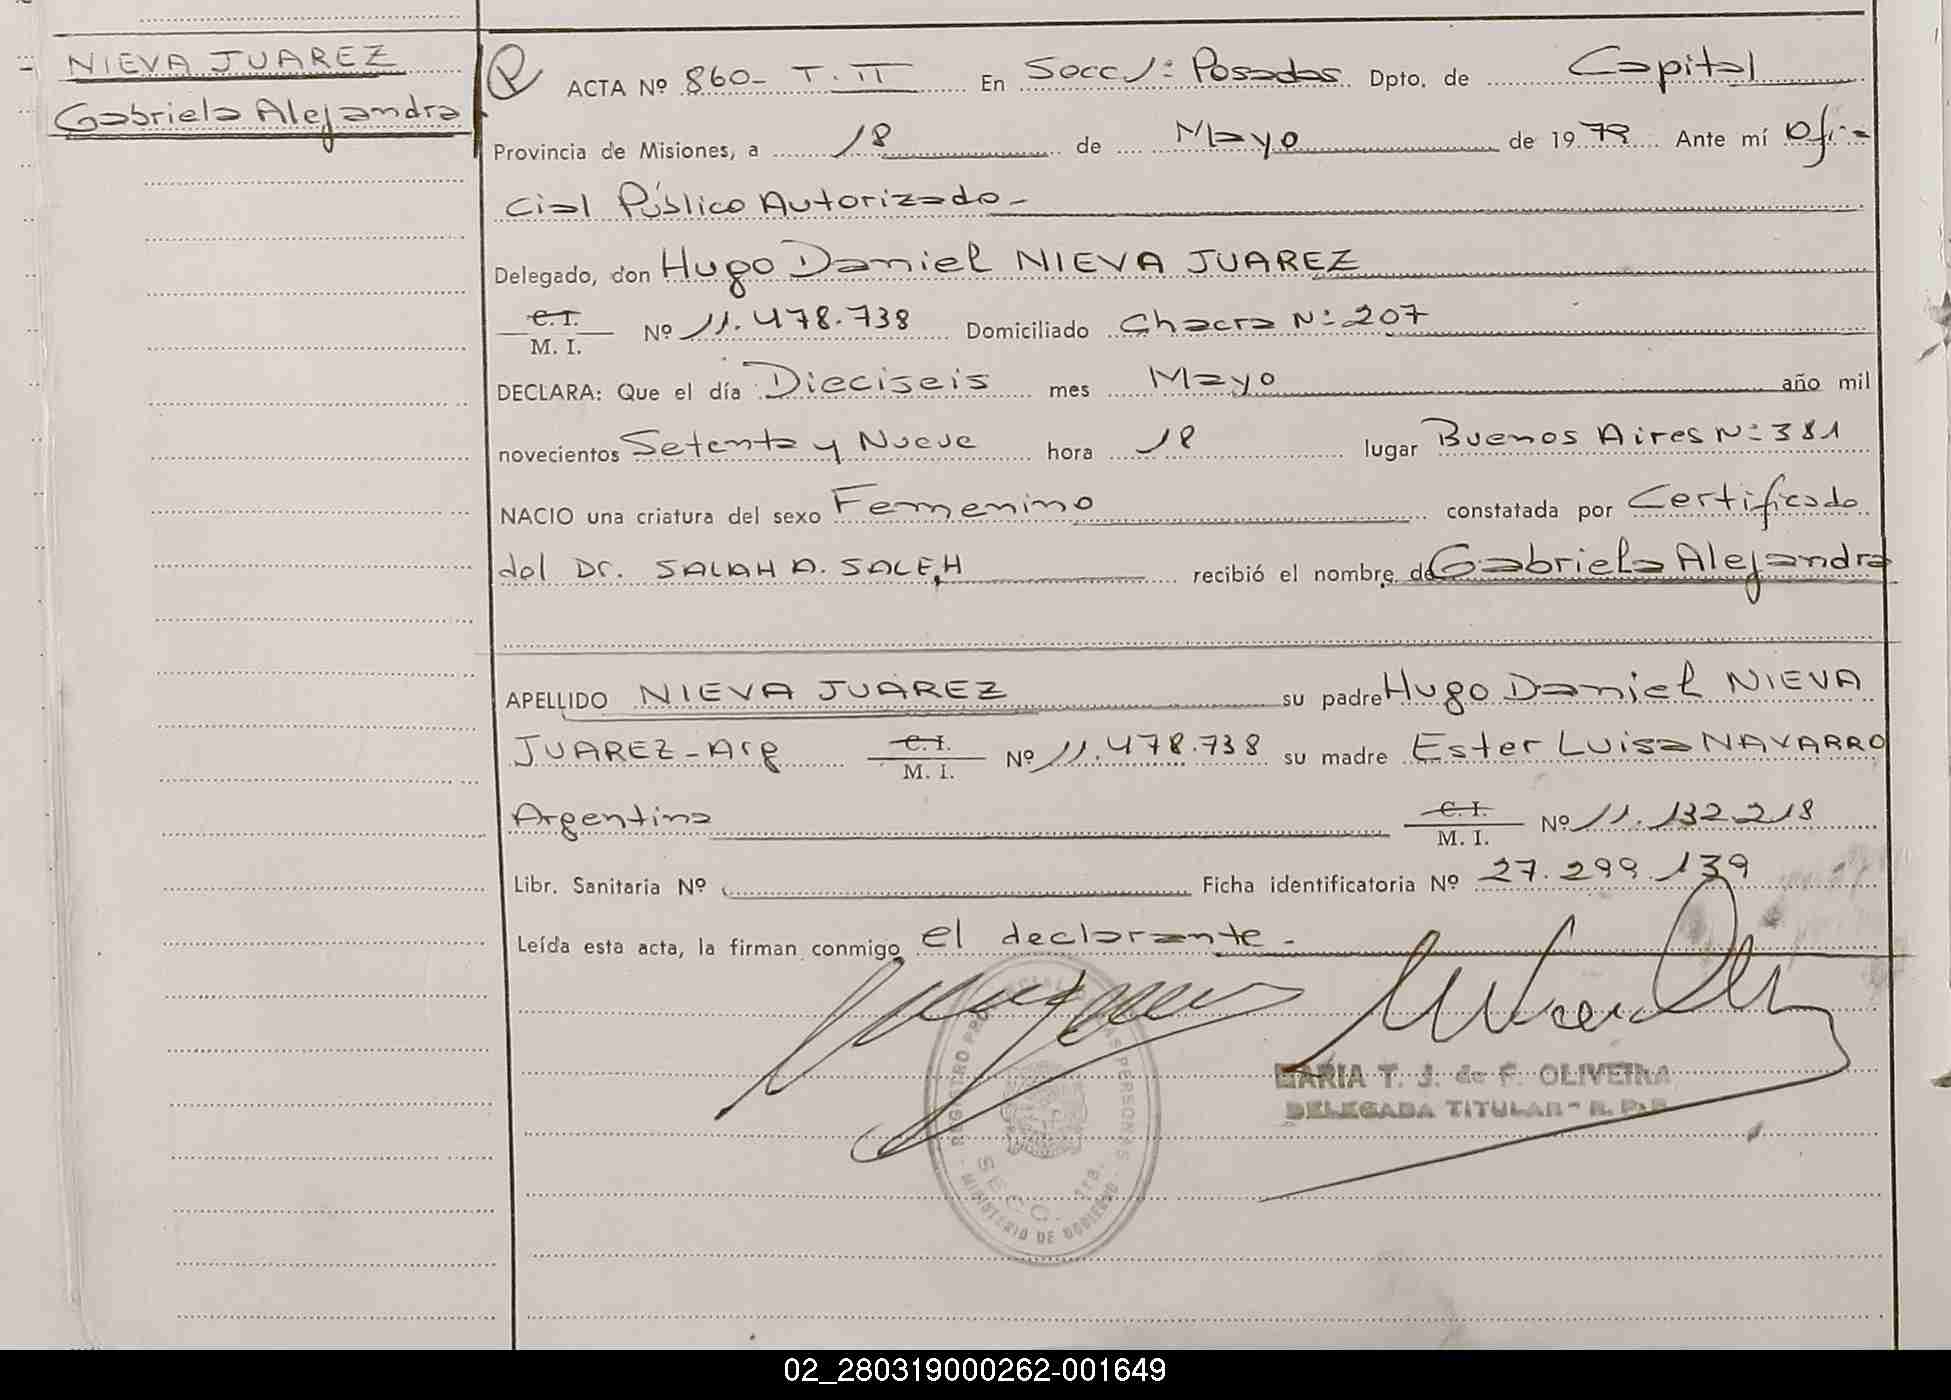 NIEVA JUAREZ
Gabriela Alejandra
ACTA Nº 860- T. II En Secc 1: Posadas Dpto. de Capital
Provincia de Misiones, a 18 de Mayo de 1979 Ante mí Ofi-
cial Público Autorizado-
Delegado, don Hugo Daniel NIEVA JUAREZ
C. I. M. I. Nº 11.478.738 Domiciliado Chacra Nº 207
DECLARA: Que el día Dieciseis mes Mayo año mil
novecientos Setenta y Nueve hora 18 lugar Buenos Aires Nº 381
NACIO una criatura del sexo Femenino constatada por Certificado
del Dr. SALAH A. SALEH recibió el nombre de Gabriela Alejandra
APELLIDO NIEVA JUAREZ su padre Hugo Daniel NIEVA
JUAREZ-Arg C. I. M. I. Nº 11.478.738 su madre Ester Luisa NAVARRO
Argentina C. I. M. I. Nº 11.132.218
Libr. Sanitaria Nº Ficha identificatoria Nº 27.299.139
Leída esta acta, la firman conmigo el declarante.-
REGISTRO PROVINCIAL DE LAS PERSONAS
SECC. 1ra.
MINISTERIO DE GOBIERNO
MARIA T. J. de F. OLIVEIRA
DELEGADA TITULAR - R. P. P.
02_280319000262-001649